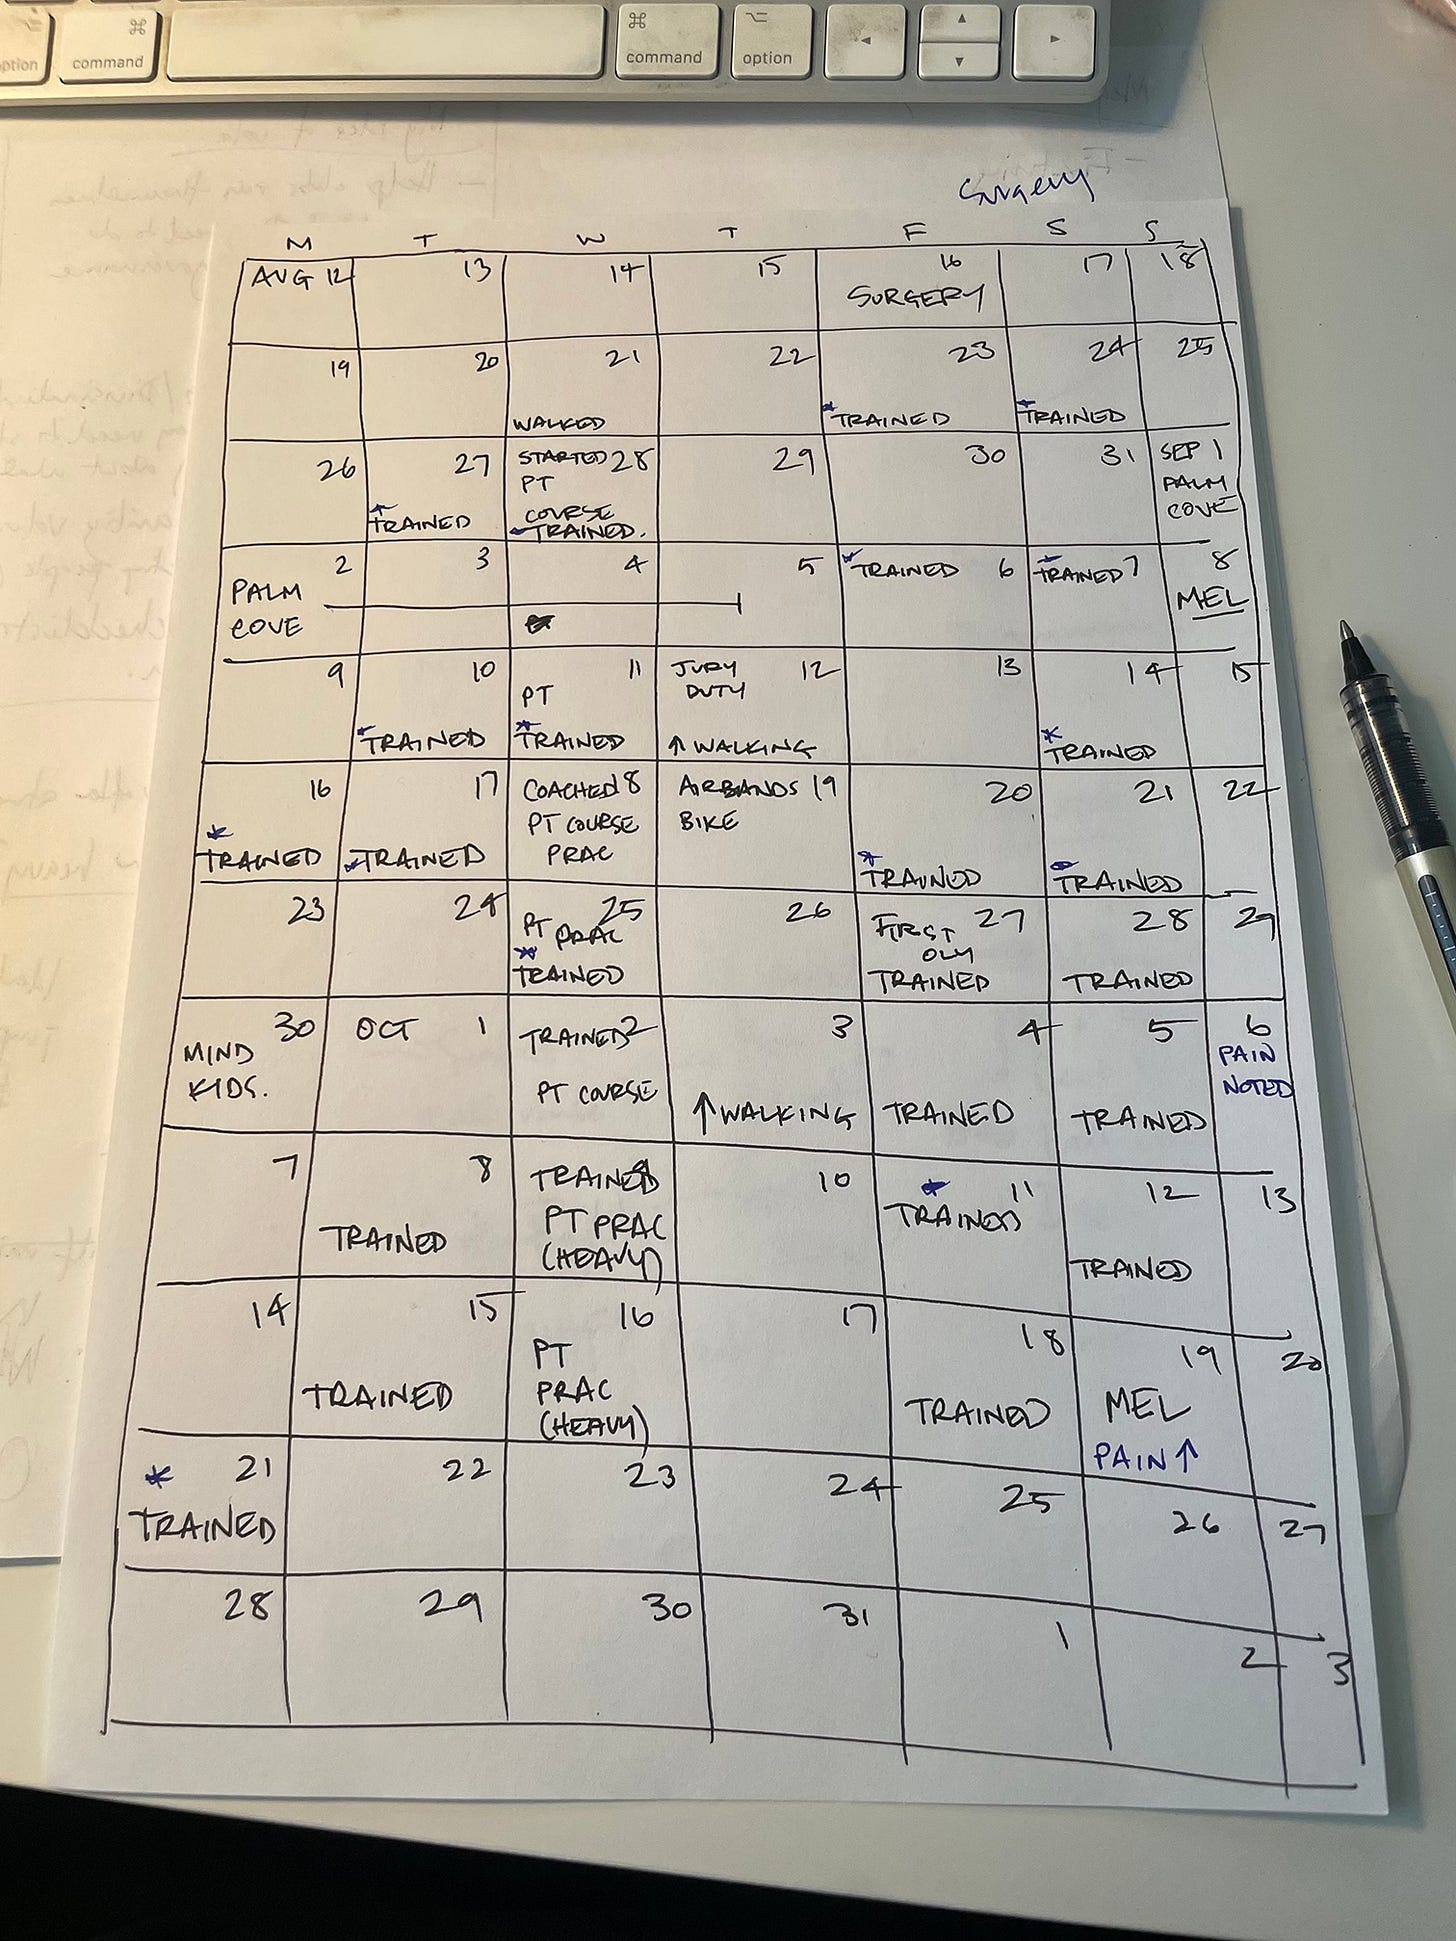 ⌘
command
⌘
command
⌥
option
◄
▲
▼
►
Surgery
M T W T F S S
AUG 12 13 14 15 16 17 18
SURGERY
19 20 21 22 23 24 25
WALKED *TRAINED *TRAINED
26 27 STARTED 28 29 30 31 SEP 1
PT PALM
COURSE COVE
*TRAINED TRAINED.
2 3 4 5 *TRAINED 6 *TRAINED 7 8
PALM MEL
COVE
9 10 11 JURY 12 13 14 15
PT DUTY
*TRAINED *TRAINED ↑ WALKING *TRAINED
16 17 COACHED 18 AIRBANDS 19 20 21 22
PT COURSE BIKE
PRAC
*TRAINED *TRAINED *TRAINED *TRAINED
23 24 25 26 FIRST 27 28 29
PT PRAC OLY
*TRAINED TRAINED TRAINED
30 OCT 1 TRAINED 2 3 4 5 6
MIND PAIN
KIDS. PT COURSE NOTED
↑ WALKING TRAINED TRAINED
7 8 TRAINED 9 10 * 11 12 13
TRAINED PT PRAC TRAINED TRAINED
(HEAVY)
14 15 16 17 18 19 20
PT MEL
TRAINED PRAC TRAINED PAIN ↑
(HEAVY)
* 21 22 23 24 25 26 27
TRAINED
28 29 30 31 1 2 3